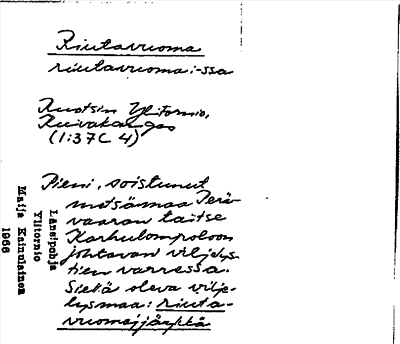 Riutavuoma
riutavuoma:-ssa
Ruotsin Ylitornio,
Kuivakangas
(1:37C 4)
Pieni, soistunut
metsämaa Perä-
vaaran taitse
Karhulompoloon
johtavan viljelys-
tien varressa.
Siellä oleva vilje-
lysmaa: riuta-
vuomajjänkkä
Länsipohja
Ylitornio
Maija Kainulainen
1966